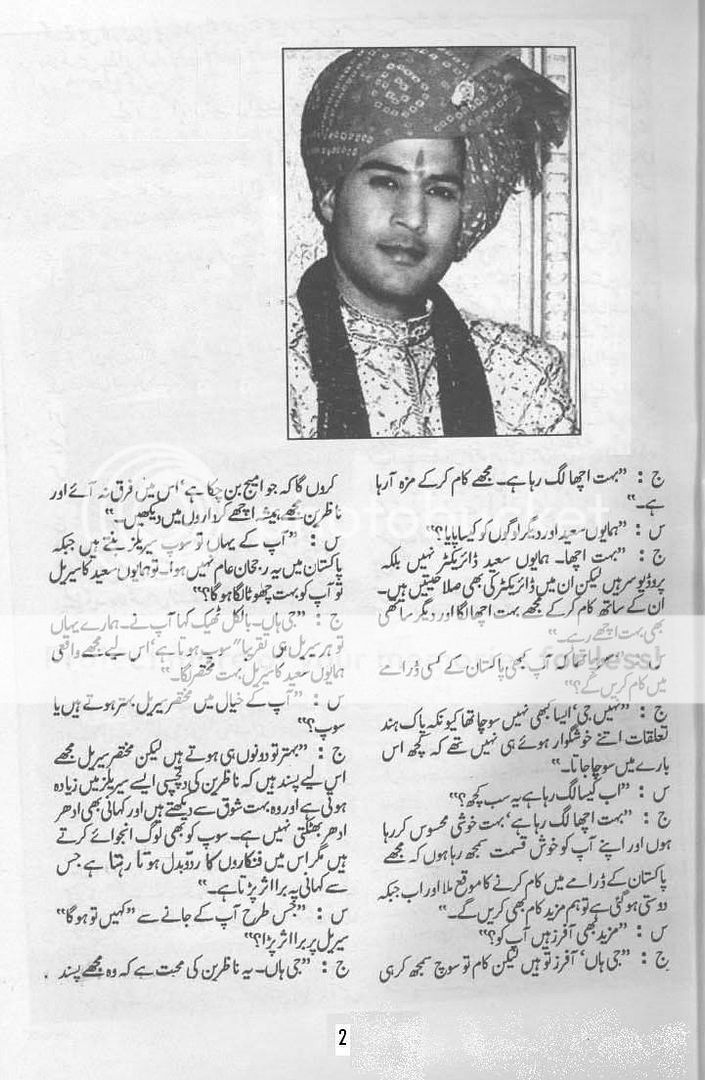 ج : ”بہت اچھا لگ رہا ہے۔ مجھے کام کرکے مزہ آرہا
ہے۔“
س : ”ہمایوں سعید اور دیگر لوگوں کو کیسا پایا؟“
ج : ”بہت اچھا۔ ہمایوں سعید ڈائریکٹر نہیں بلکہ
پروڈیوسر ہیں لیکن ان میں ڈائریکٹر کی بھی صلاحیتیں ہیں۔
ان کے ساتھ کام کرکے مجھے بہت اچھا لگا اور دیگر ساتھی
بھی بہت اچھے رہے۔“
س : ”سوچا تھا کہ آپ کبھی پاکستان کے کسی ڈرامے
میں کام کریں گے؟“
ج : ”نہیں جی‘ ایسا کبھی نہیں سوچا تھا کیونکہ پاک ہند
تعلقات اتنے خوشگوار ہوئے ہی نہیں تھے کہ کچھ اس
بارے میں سوچا جاتا۔“
س : ”اب کیسا لگ رہا ہے یہ سب کچھ؟“
ج : ”بہت اچھا لگ رہا ہے‘ بہت خوشی محسوس کررہا
ہوں اور اپنے آپ کو خوش قسمت سمجھ رہا ہوں کہ مجھے
پاکستان کے ڈرامے میں کام کرنے کا موقع ملا اور اب جبکہ
دوستی ہوگئی ہے تو ہم مزید کام بھی کریں گے۔“
س : ”مزید بھی آفرز ہیں آپ کو؟“
ج : ”جی ہاں‘ آفرز تو ہیں لیکن کام تو سوچ سمجھ کر ہی
کروں گا کہ جو امیج بن چکا ہے‘ اس میں فرق نہ آئے اور
ناظرین مجھے ہمیشہ اچھے کرداروں میں دیکھیں۔“
س : ”آپ کے یہاں تو سوپ سیریلز بنتے ہیں جبکہ
پاکستان میں یہ رجحان عام نہیں ہوا۔ تو ہمایوں سعید کا سیریل
تو آپ کو بہت چھوٹا لگا ہوگا؟“
ج : ”جی ہاں۔ بالکل ٹھیک کہا آپ نے۔ ہمارے یہاں
تو ہر سیریل ہی تقریباً ”سوپ ہوتا ہے‘ اس لیے مجھے واقعی
ہمایوں سعید کا سیریل بہت مختصر لگا۔“
س : ”آپ کے خیال میں مختصر سیریل بہتر ہوتے ہیں یا
سوپ؟“
ج : ”بہتر تو دونوں ہی ہوتے ہیں لیکن مختصر سیریل مجھے
اس لیے پسند ہیں کہ ناظرین کی دلچسپی ایسے سیریلز میں زیادہ
ہوتی ہے اور وہ بہت شوق سے دیکھتے ہیں اور کہانی بھی ادھر
ادھر بھٹکتی نہیں ہے۔ سوپ کو بھی لوگ انجوائے کرتے
ہیں مگر اس میں فنکاروں کا ردوبدل ہوتا رہتا ہے جس
سے کہانی پہ برا اثر پڑتا ہے۔“
س : ”جس طرح آپ کے جانے سے ”کہیں تو ہوگا“
سیریل پر برا اثر پڑا؟“
ج : ”جی ہاں۔ یہ ناظرین کی محبت ہے کہ وہ مجھے پسند
2